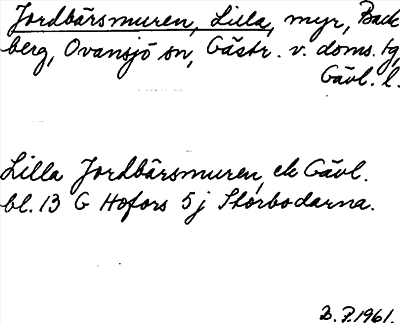 Jordbärsmuren, Lilla, myr, Back
berg, Ovansjö sn, Gästr. v. doms. tg,
Gävl. l.
Lilla Jordbärsmuren, ek Gävl.
bl. 13 G Hofors 5 j Storbodarna.
B. P. 1961.